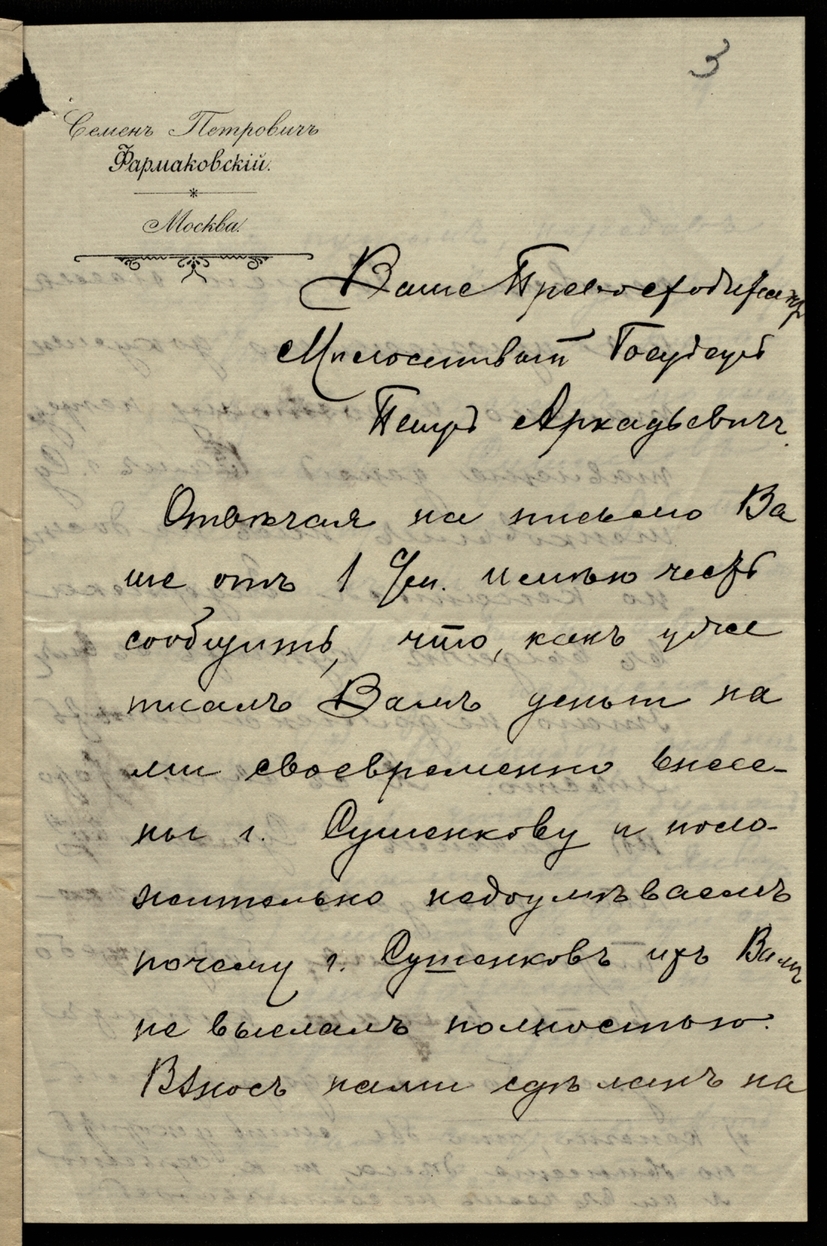 3
Семенъ Петровичъ
Фармаковскій.
Москва.
Ваше Превосходительство
Милостивый Государь
Петръ Аркадьевичъ.
Отвѣчая на письмо Ва
ше отъ 1 Дек. имѣю честь
сообщить, что, какъ уже
писалъ Вамъ деньги на
ми своевременно внесе-
ны г. Сушенкову и поло-
жительно недоумѣваемъ
почему г. Сушенковъ ихъ Вамъ
не выслалъ полностью.
Взносъ нами сдѣланъ на